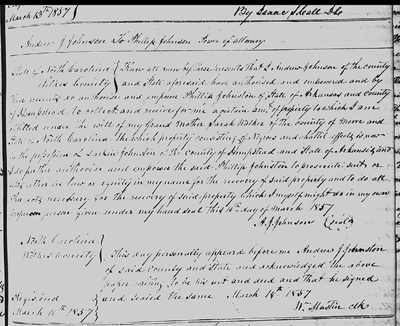 March 13th 1857 By Isaac S. Call DC
Andrew J Johnson To Phillip Johnson Power of attorney
State of North Carolina } Know all men by these presents that I Andrew Johnson of the county
Wilkes County } and State aforesaid have authorised and empowered and by
these presents do authorise and empower Phillip Johnston of State of Arkansas and County
of Hempstead to collect and receive for me a certain amt of property to which I am
entitled under the will of my Grand Mother Sarah of the County of Moore and
State of N Carolina the which property consisting of Negroes and chattel effects is now
in the possession of Larkin Johnston of the County of Hempstead and State of Arkansas, and
I do further authorise and empower the said Phillip Johnston to prosecute suits or
either in law or equity in my name for the recovery of said property and to do all
acts necessary for the recovery of said property which I myself might do in my own
proper person given under my hand seal this day of March 1857
A. J. Johnson (seal)
North Carolina }
Wilkes County } This day personally appeared before me Andrew J Johnston
of said County and State and acknowledged the above
paper to be his act and deed and that he signed
Registered } and sealed the same March 1857
March 1857 } W. Mastin clk